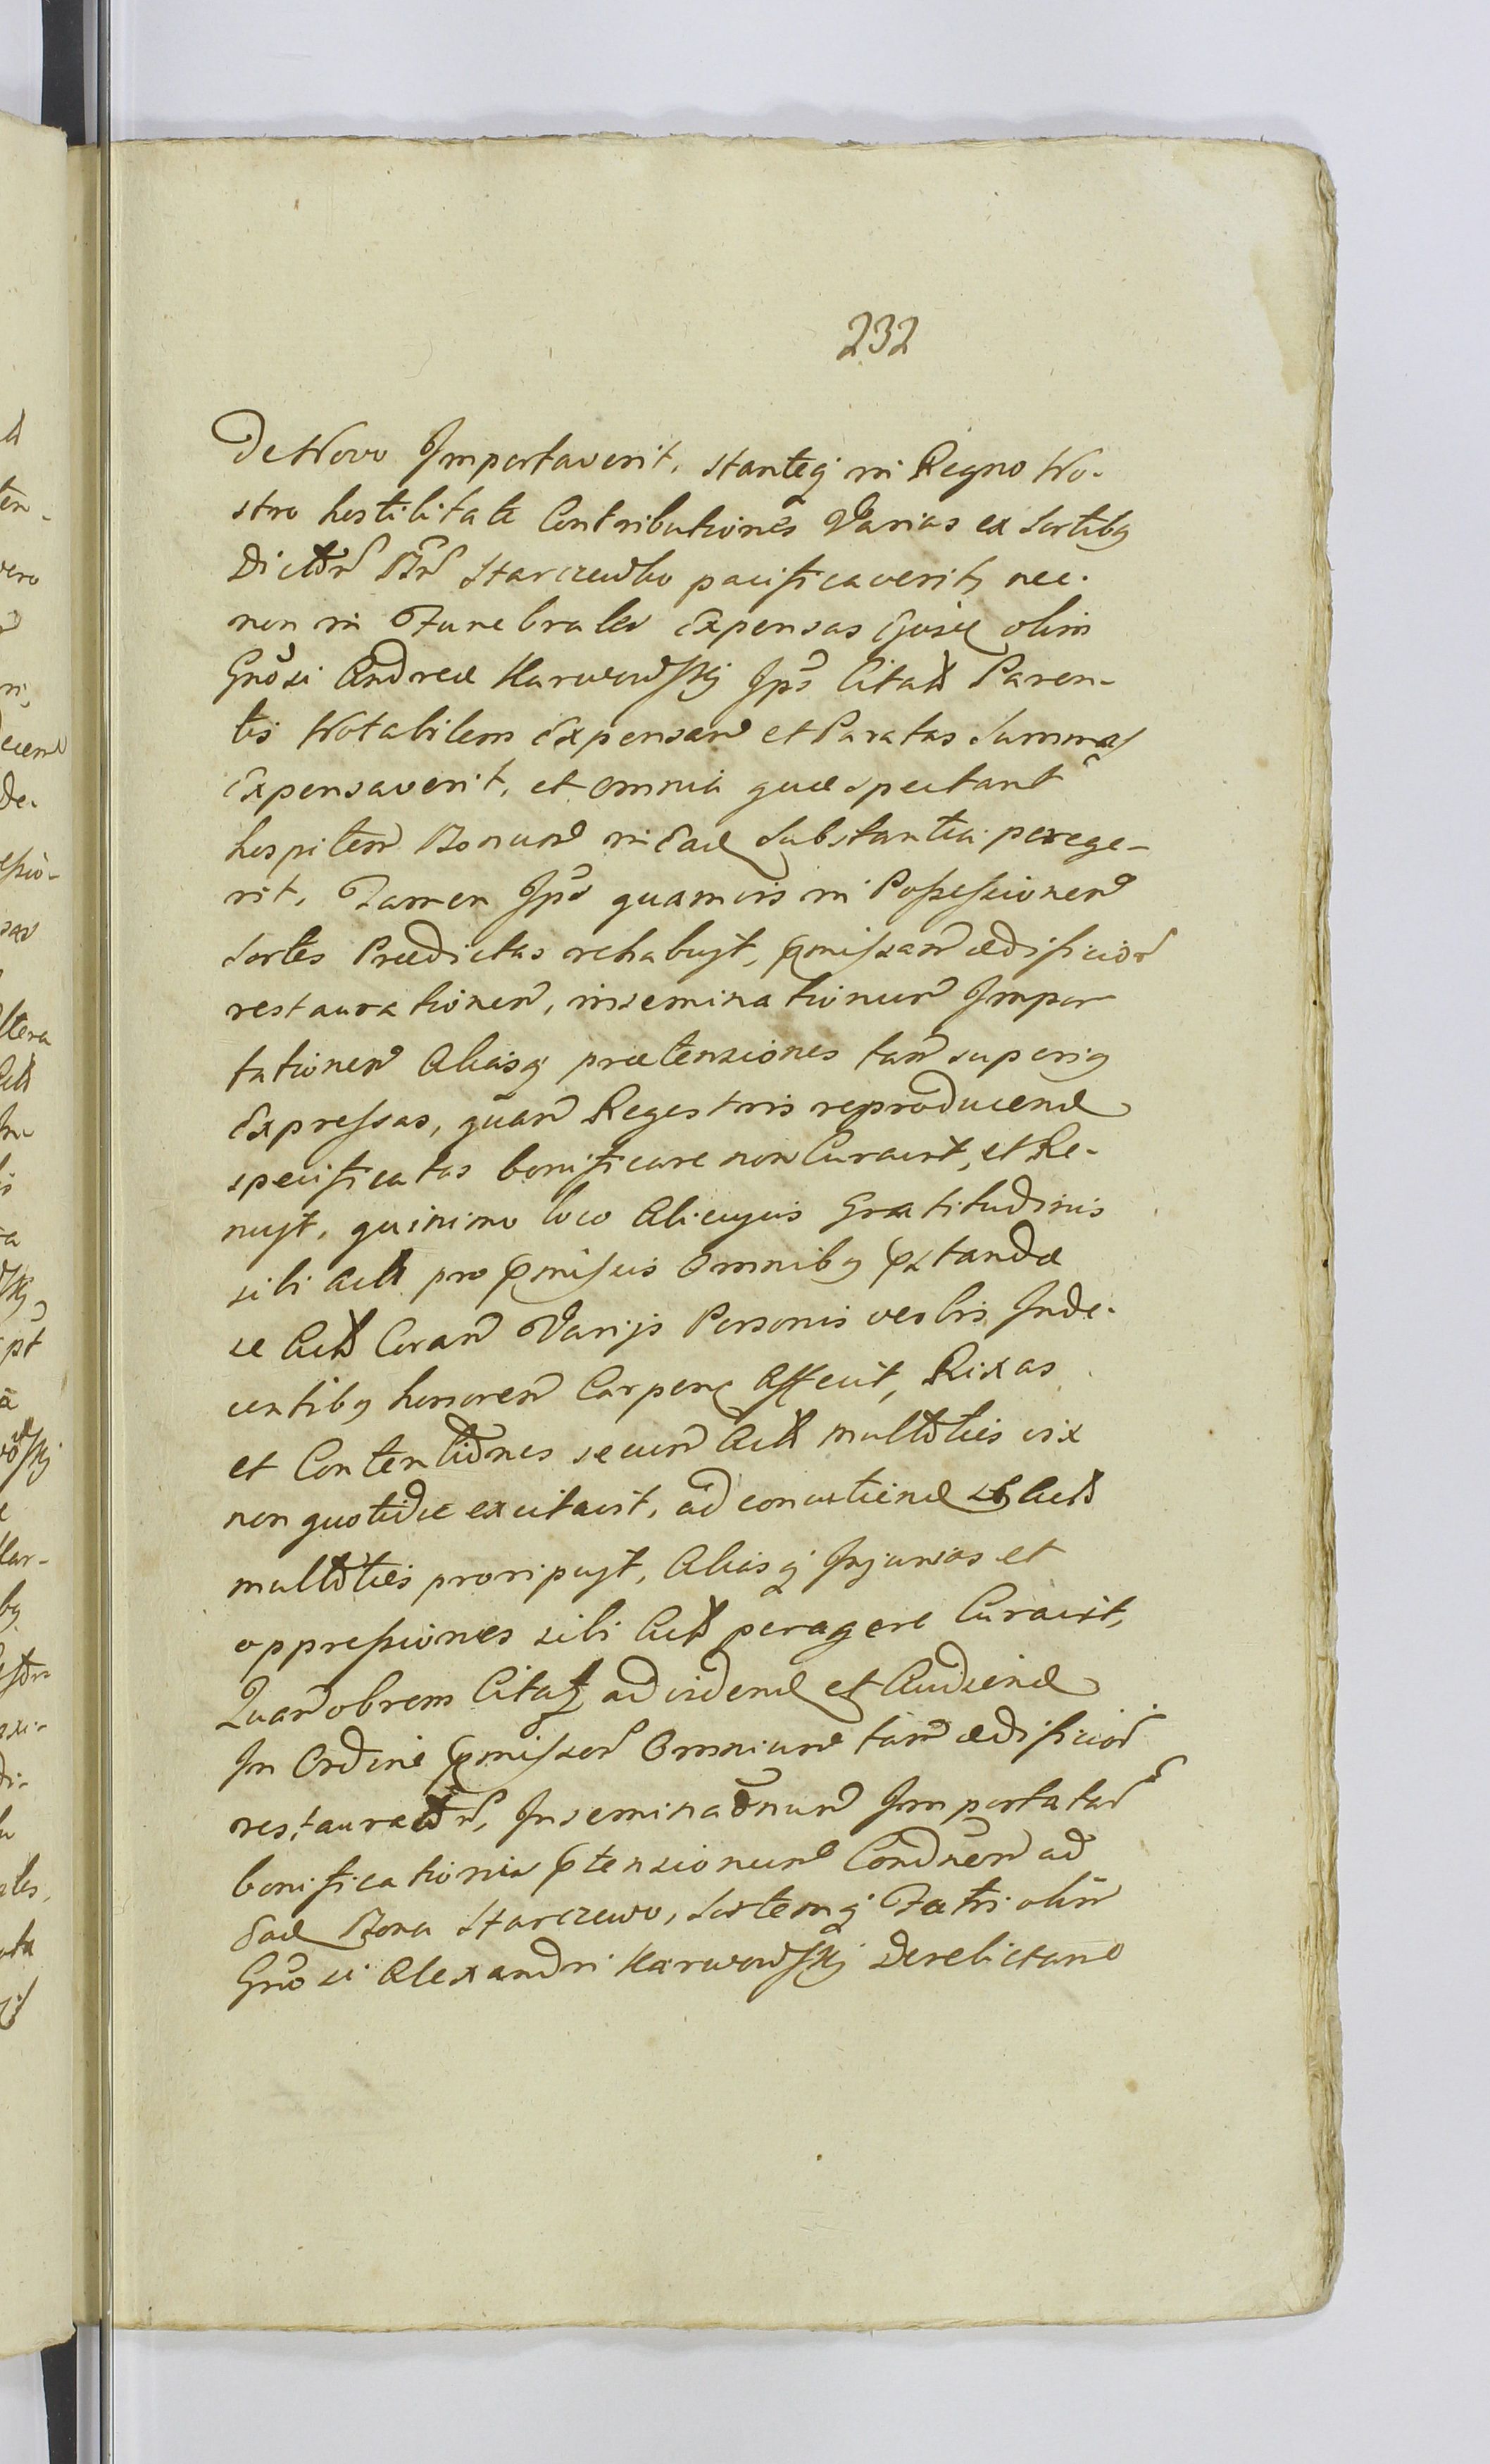 232
De Novo Importaverit, stanteq in Regno No-
stro hostilitate Contributiones Varias ex Sortibq
Dictor Bnr Starczewko pacificaverit, nec-
non in Funebrales Expensas Gnsi olim
Gnosi Andreæ Karwowskij Ips Citati Paren-
tis Notabilem Expensam et Paratas Summas
Expensaverit, et omnia quæ spectant
hospitem Bonum in Ead Substantia perege-
rit, Tamen Ips quamvis in Possessionem
Sortes Prædictas rehabuyt, pmissam ædificior
restaurationem, inseminationum Impor
tationem Aliasq prætensiones tam superiq
Expressas, quam Regestris reproducend
specificatas bonificare non Curavit, et Re-
nuyt, quinimo loco Alicuyus Gratitudinis
sibi Act pro pmissis Omnibq pstandæ
se Act Coram Varijs Personis verbis Inde-
centibq honorem Carpere Assecit, Rixas
et Contentiones secum Act multoties vix
non quotidie excitavit, ad concutiend Act
multoties proripuyt, Aliasq Injurias et
oppressiones sibi Act peragere Curavit,
Quamobrem Citat ad vidend et Audiend
In Ordine pmissor Omnium tam ædificior
restaurator, Inseminaonum Importatar
bonificationis ptensionum Condnem ad
Ead Bona Starczewo, Sortemq Fatri olim
Gnosi Alexandri Karwowskij Derelictam